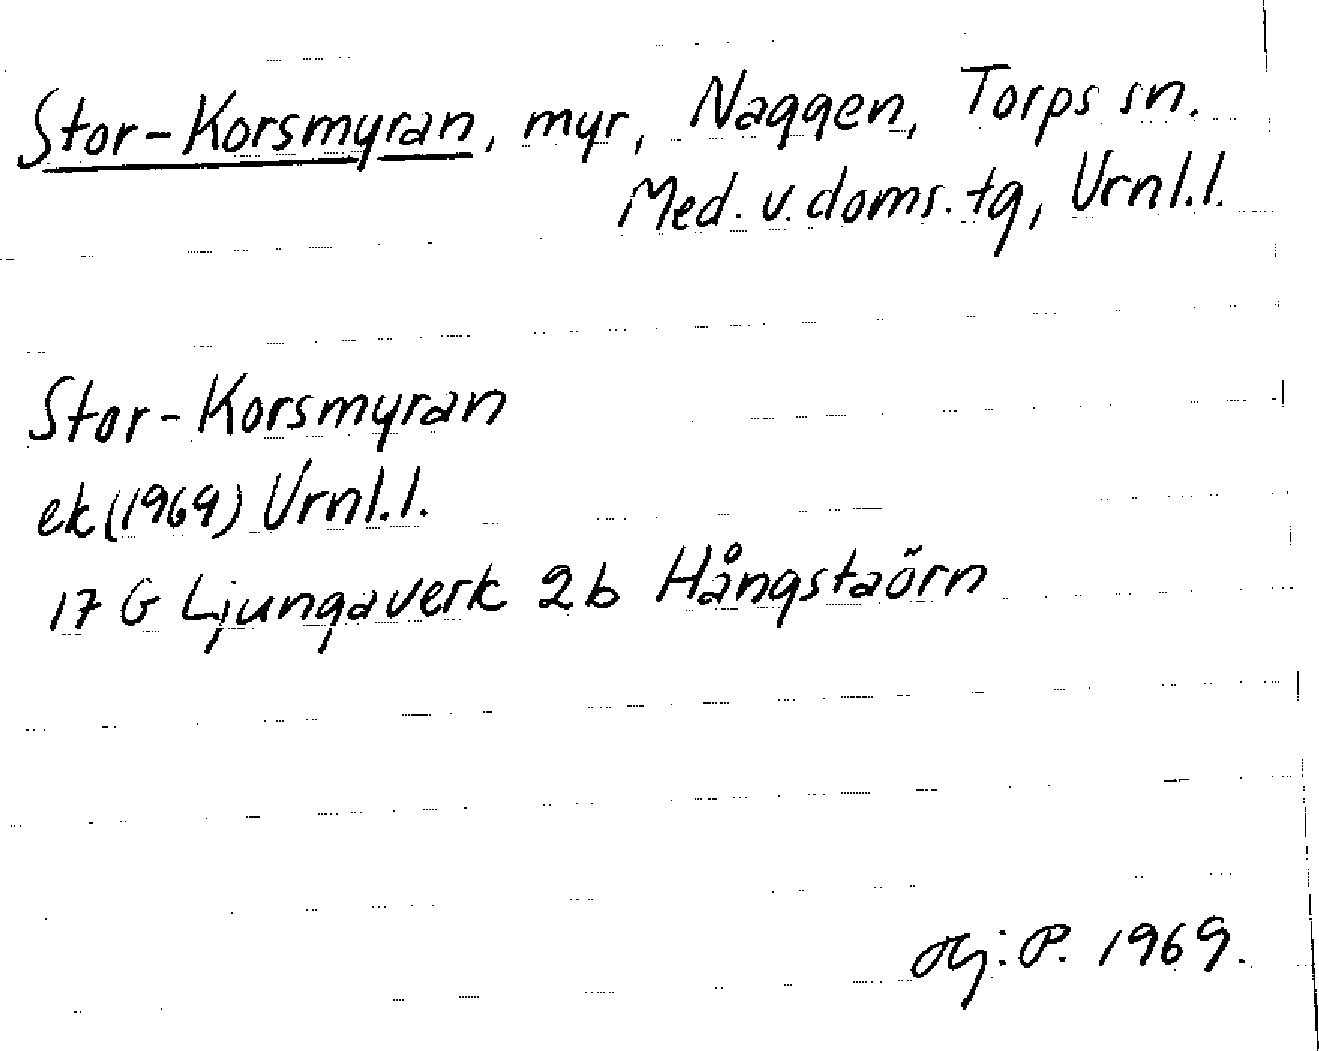 Stor-Korsmyran, myr, Naggen, Torps sn.
Med. v. doms. tg, Vrnl.l.
Stor-Korsmyran
ek (1969) Vrnl.l.
17 G Ljungaverk 2b Hångstaörn
Hj: P. 1969.